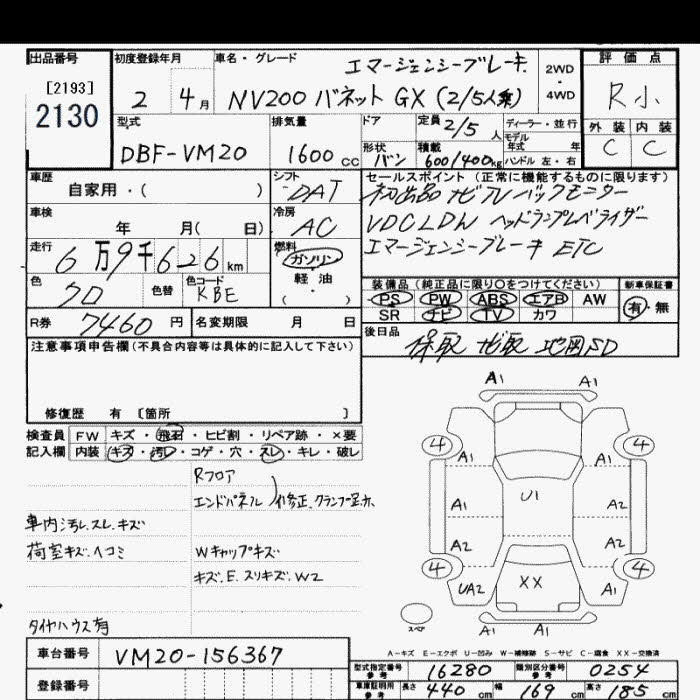 出品番号
[2193]
2130
初度登録年月
2 4 月
車名・グレード
エマージェンシーブレーキ
NV200 バネット GX (2/5人乗)
2WD
・
4WD
評価点
R小
外装 内装
C C
型式
DBF-VM20
排気量
1600 cc
ドア
形状
バン
定員 2/5 人
積載
600/400kg
ディーラー・並行
モデル
年式 年
ハンドル 左・右
車歴
自家用・( )
シフト
DAT
車検
年 月( 日)
冷房
AC
走行
6万9千626km
燃料
ガソリン
軽油
( )
色
クロ
色替
色コード
KBE
R券 7460 円
名変期限 月 日
セールスポイント (正常に機能するものに限ります)
初出品 ナビ アルバ バックモニター
VDC LDW ヘッドランプレベライザー
エマージェンシーブレーキ ETC
装備品 (純正品に限り○をつけてください)
新車保証書
PS PW ABS エアB AW
SR ナビ TV カワ
有・無
後日品
保取 ナビ取 地図SD
注意事項申告欄 (不具合内容等は具体的に記入して下さい)
修復歴 有 〔箇所 〕
検査員
記入欄
FW キズ・飛石・ヒビ割・リペア跡・×要
内装 キズ・汚レ・コゲ・穴・スレ・キレ・破レ
Rフロア
エンドパネル )修正、クランプ足赤
車内汚レ、スレ、キズ
荷室キズ、ヘコミ
Wキャップキズ
キズ.E.スリキズ.W2
タイヤハウス有
A1 A1
4 4
A1 A1
A1 U1 A2
A2 A2
4 4
UA2 XX A1
スペア
A1 A1
A-キズ E-エクボ U-凹み W-補修跡 S-サビ C-腐食 XX-交換済
車台番号 VM20-156367
登録番号
型式指定番号
参考
16280
類別区分番号
参考
0254
車庫証明用
参考
長さ 440 cm 幅 169 cm 高さ 185 cm